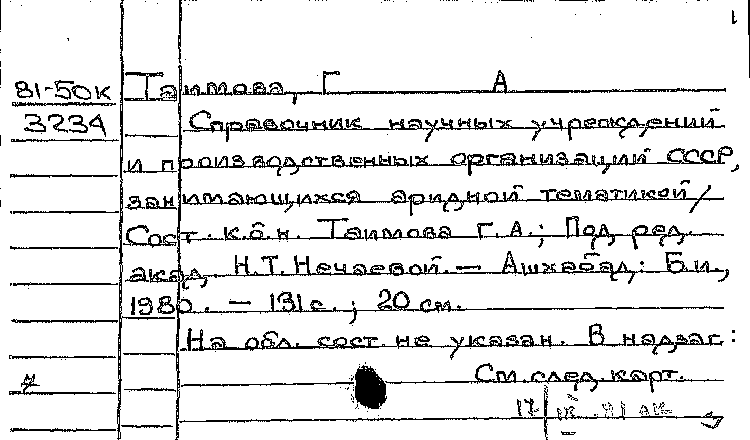 1
81-50к Таимова, Г А
3234 Справочник научных учреждений
и производственных организаций СССР,
занимающихся аридной тематикой /
Сост. к.б.н. Таимова Г.А.; Под ред.
акад. Н.Т.Нечаевой. — Ашхабад: Б.и.,
1980. — 131 с.; 20 см.
На обл. сост. не указан. В надзаг.:
См. след. карт.
17